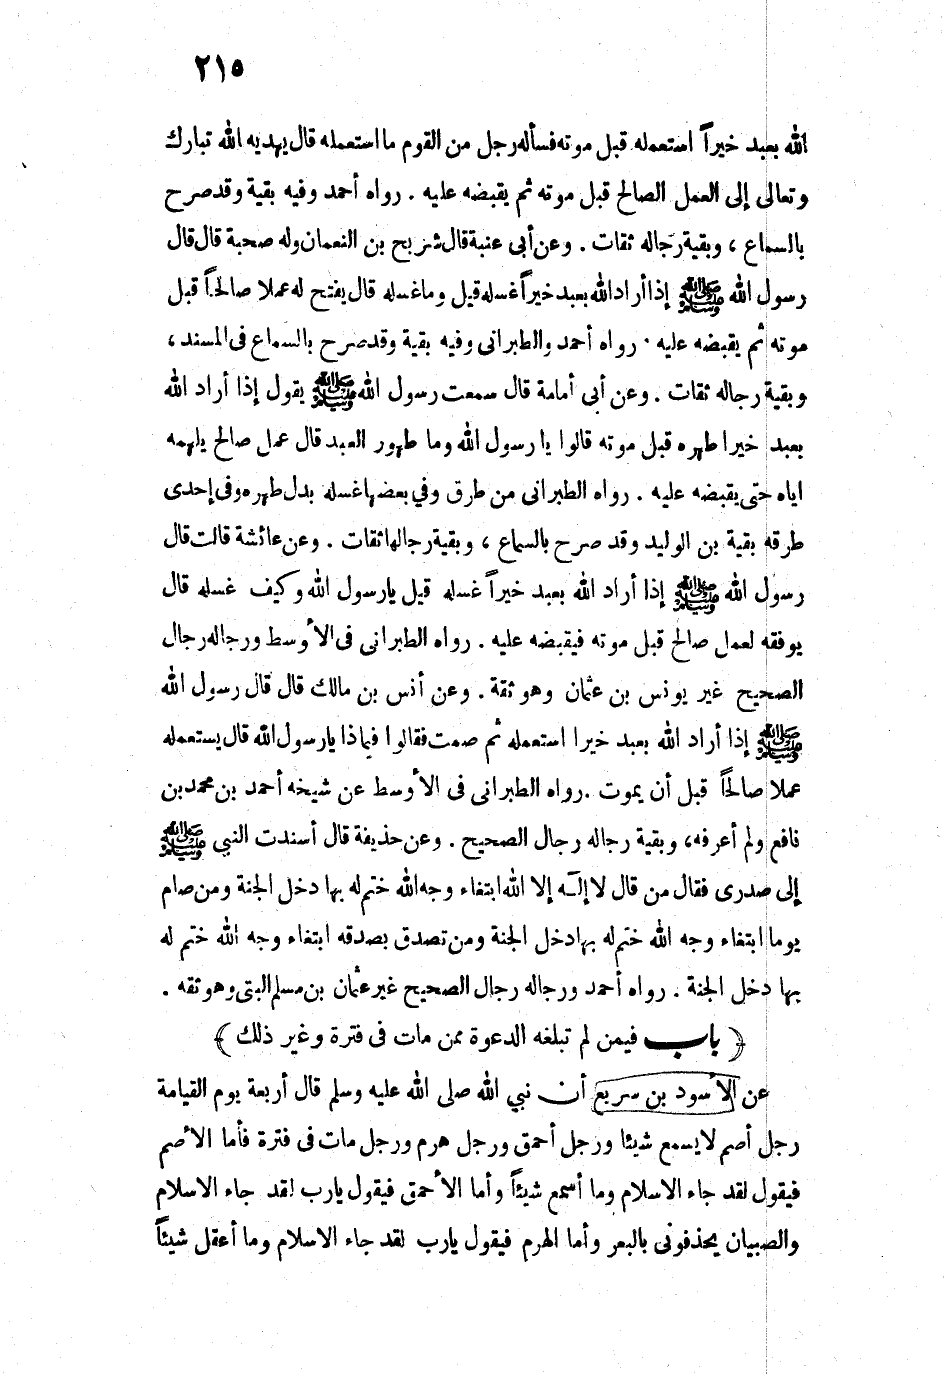 ٢١٥
الله بعبد خيراً استعمله قبل موته فسأله رجل من القوم ما استعمله قال يهديه الله تبارك
وتعالى إلى العمل الصالح قبل موته ثم يقبضه عليه . رواه أحمد وفيه بقية وقد صرح
بالسماع ، وبقية رجاله ثقات . وعن أبى عنبة قال شريح بن النعمان وله صحبة قال قال
رسول الله ﷺ إذا أراد الله بعبد خيراً غسله قيل وما غسله قال يفتح له عملا صالحاً قبل
موته ثم يقبضه عليه . رواه أحمد والطبرانى وفيه بقية وقد صرح بالسماع فى المسند ،
وبقية رجاله ثقات . وعن أبى أمامة قال سمعت رسول الله ﷺ يقول إذا أراد الله
بعبد خيرا طهره قبل موته قالوا يا رسول الله وما طهور العبد قال عمل صالح يلهمه
اياه حتى يقبضه عليه . رواه الطبرانى من طرق وفي بعضها غسله بدل طهره وفى إحدى
طرقه بقية بن الوليد وقد صرح بالسماع ، وبقية رجالها ثقات . وعن عائشة قالت قال
رسول الله ﷺ إذا أراد الله بعبد خيراً غسله قيل يارسول الله وكيف غسله قال
يوفقه لعمل صالح قبل موته فيقبضه عليه . رواه الطبرانى فى الأوسط ورجاله رجال
الصحيح غير يونس بن عثمان وهو ثقة . وعن أنس بن مالك قال قال رسول الله
ﷺ إذا أراد الله بعبد خيرا استعمله ثم صمت فقالوا فيماذا يارسول الله قال يستعمله
عملا صالحاً قبل أن يموت . رواه الطبرانى فى الأوسط عن شيخه أحمد بن محمد بن
نافع ولم أعرفه، وبقية رجاله رجال الصحيح . وعن حذيفة قال أسندت النبي ﷺ
إلى صدرى فقال من قال لا إله إلا الله ابتغاء وجه الله ختم له بها دخل الجنة ومن صام
يوما ابتغاء وجه الله ختم له بها دخل الجنة ومن تصدق بصدقه ابتغاء وجه الله ختم له
بها دخل الجنة . رواه أحمد ورجاله رجال الصحيح غير عثمان بن مسلم البتى وهو ثقه .
﴿ باب فيمن لم تبلغه الدعوة ممن مات فى فترة وغير ذلك ﴾
عن الأسود بن سريع أن نبي الله صلى الله عليه وسلم قال أربعة يوم القيامة
رجل أصم لا يسمع شيئا ورجل أحمق ورجل هرم ورجل مات فى فترة فأما الأصم
فيقول لقد جاء الاسلام وما أسمع شيئاً وأما الأحمق فيقول يارب لقد جاء الاسلام
والصبيان يحذفونى بالبعر وأما الهرم فيقول يارب لقد جاء الاسلام وما أعقل شيئاً